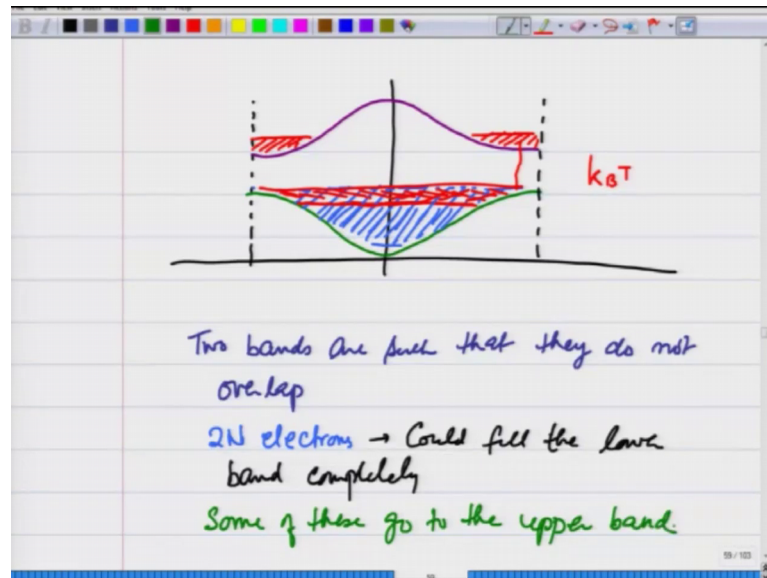 k_BT
Two bands are such that they do not
overlap
2N electrons → Could fill the lower
band completely
Some of these go to the upper band.
59 / 103